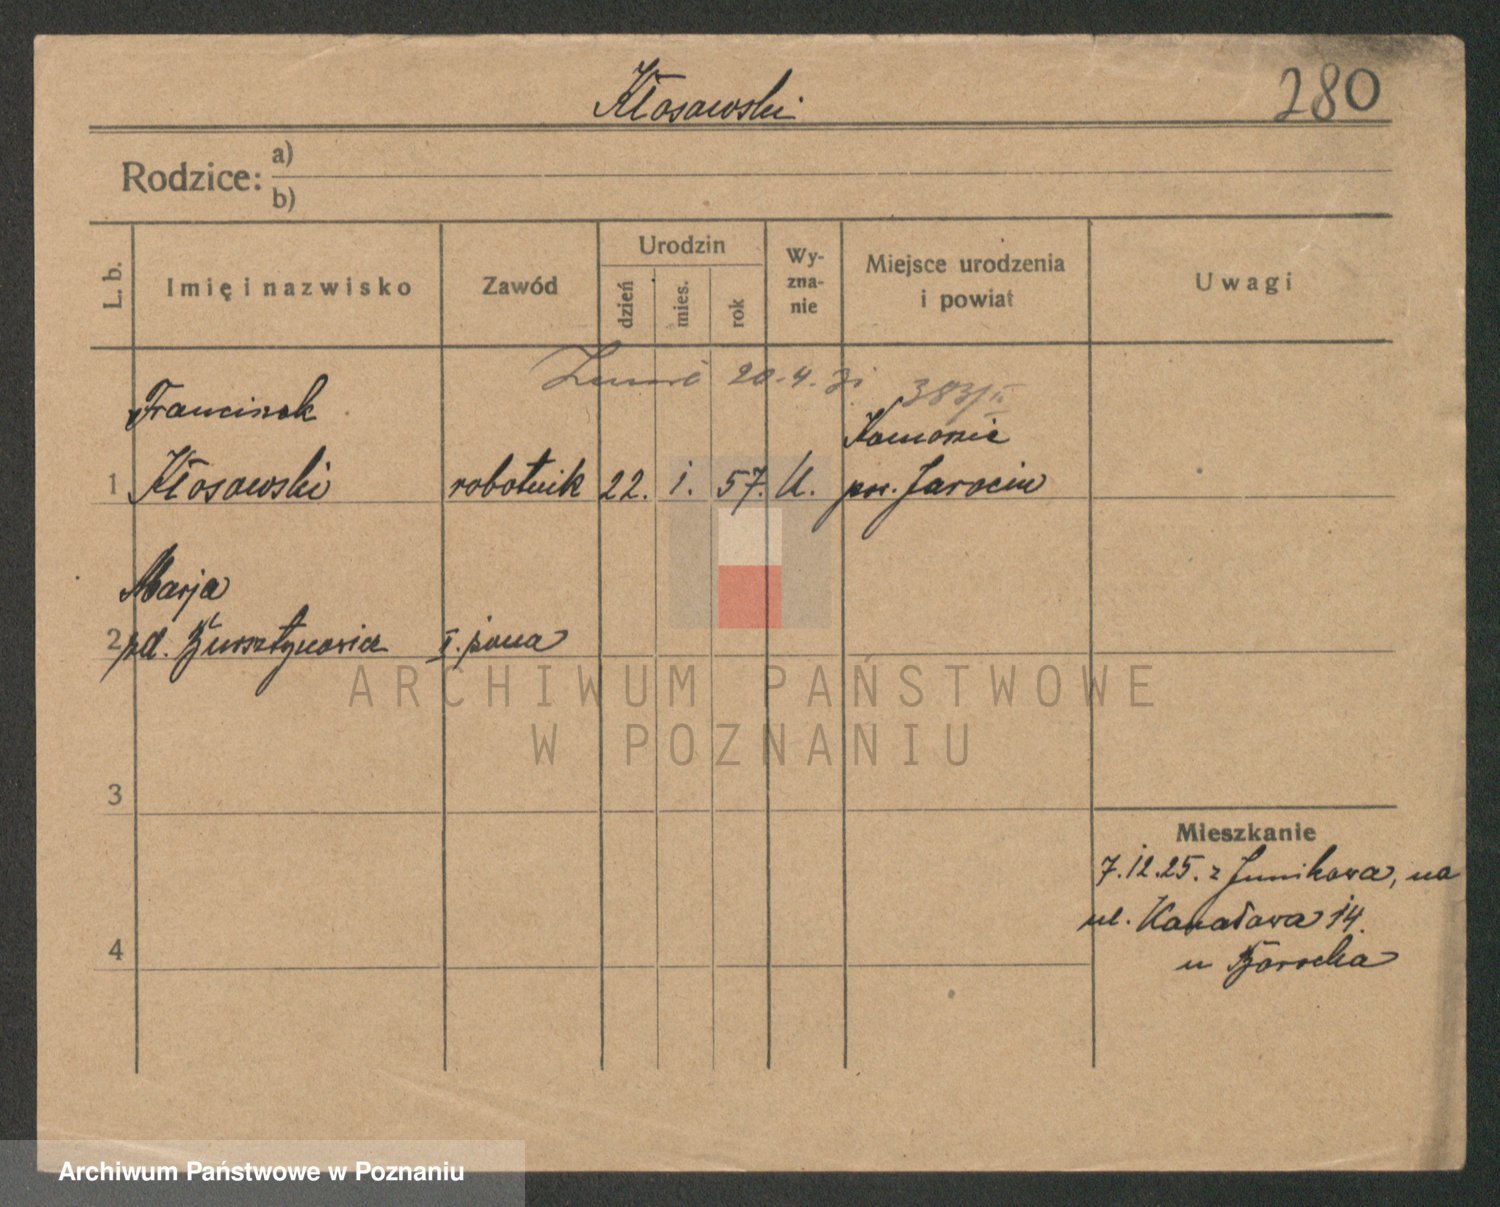 Kłosowski
280
Rodzice:
a)
b)
L. b.
Imię i nazwisko
Zawód
Urodzin
dzień
mies.
rok
Wy-
zna-
nie
Miejsce urodzenia
i powiat
Uwagi
20.4.31
383/II
Franciszek
1 Kłosowski robotnik 22. 1. 57. k. pow. Jarocin
Marja
2 zd. II. żona
3
4
Mieszkanie
7.12.25. z Junikowa, na
ul. Kanałowa 14.
u
ARCHIWUM PAŃSTWOWE
W POZNANIU
Archiwum Państwowe w Poznaniu